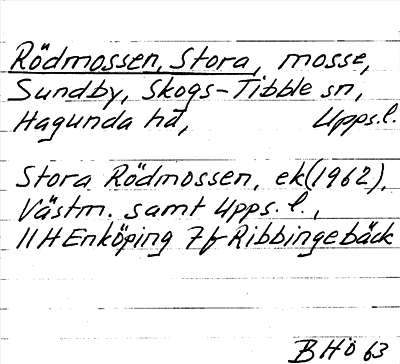 Rödmossen, Stora, mosse,
Sundby, Skogs-Tibble sn,
Hagunda hd, Upps.l.
Stora Rödmossen, ek(1962),
Västm. samt Upps. l.,
11H Enköping 7f Ribbingebäck
BHö 63